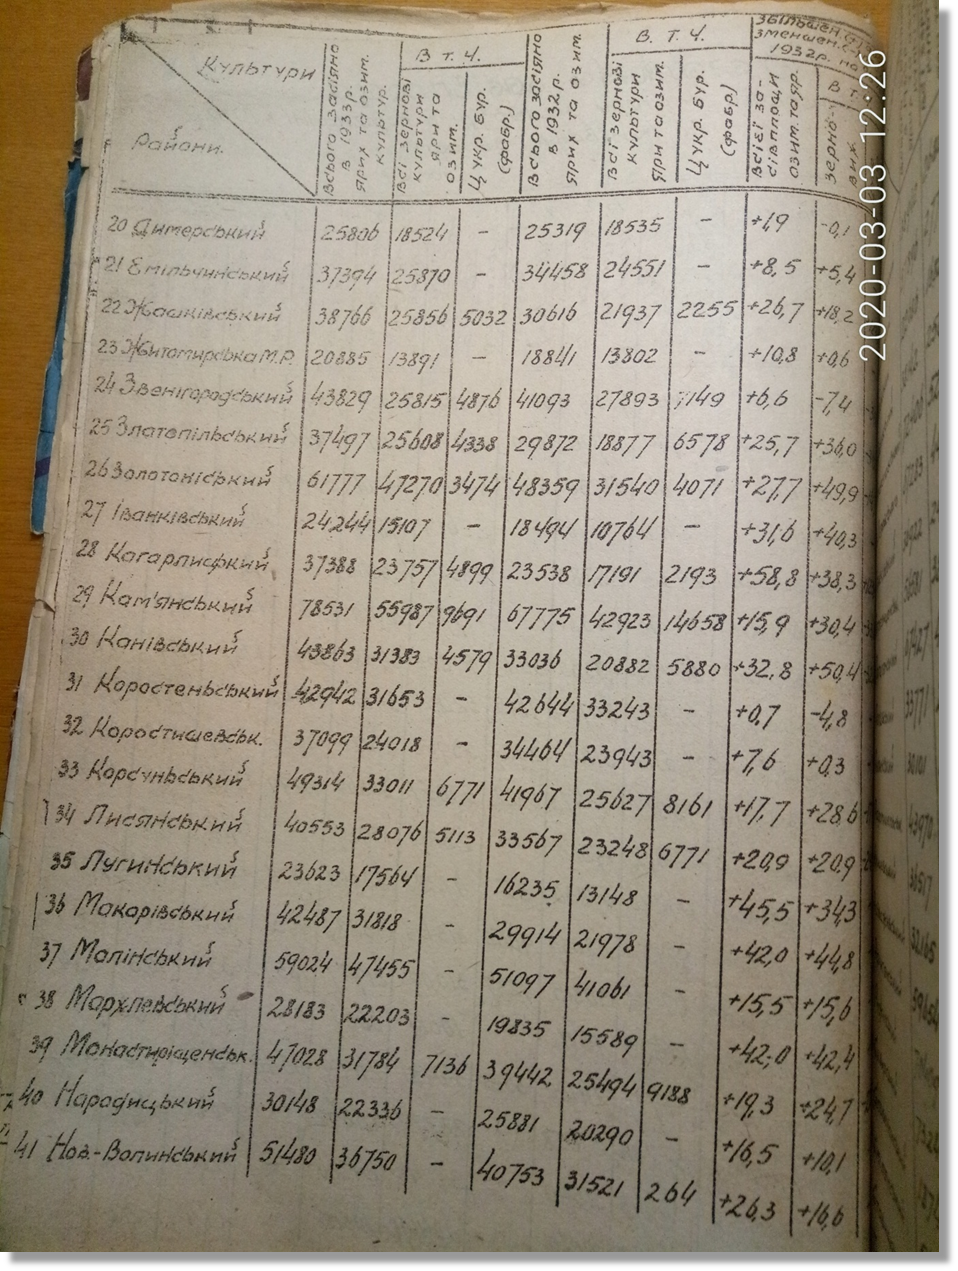 Культури
Райони.
Всього засіяно в 1933р. ярих та озим. культур.
В т. ч.
Всі зернові культури яри та озим.
Цукр. бур. (фабр)
Всього засіяно в 1932р. ярих та озим.
В. т. ч.
Всі зернові культури яри та озим.
Цукр. бур. (фабр)
1932р.
Всієї за-
сівплощи
озим. та яр.
зерно-
2020-03-03 12:26
20 Димерський 25806 18524 - 25319 18535 - +1,9 -0,1
21 Емільчинський 37394 25870 - 34458 24551 - +8,5 +5,4
22 Жашківський 38766 25856 5032 30616 21937 2255 +26,7 +18,2
23 Житомирська М.Р. 20885 13891 - 18841 13802 - +10,8 +0,6
24 Звенігородський 43829 25815 4876 41093 27893 7149 +6,6 -7,4
25 Златопільський 37497 25608 4338 29872 18877 6578 +25,7 +36,0
26 Золотоніський 61777 47270 3474 48359 31540 4071 +27,7 +49,9
27 Іванківський 24244 15107 - 18494 10764 - +31,6 +40,3
28 Кагарлицький 37388 23757 4899 23538 17191 2193 +58,8 +38,3
29 Кам'янський 78531 55987 9691 67775 42923 14658 +15,9 +30,4
30 Канівський 43863 31383 4579 33036 20882 5880 +32,8 +50,4
31 Коростеньський 42942 31653 - 42644 33243 - +0,7 -4,8
32 Коростишевськ. 37099 24018 - 34464 23943 - +7,6 +0,3
33 Корсуньський 49314 33011 6771 41967 25627 8161 +17,7 +28,6
34 Лисянський 40553 28076 5113 33567 23248 6771 +20,9 +20,9
35 Лугинський 23623 17564 - 16235 13148 - +45,5 +34,3
36 Макарівський 42487 31818 - 29914 21978 - +42,0 +44,8
37 Малінський 59024 47455 - 51097 41061 - +15,5 +15,6
38 Мархлевський 28183 22203 - 19835 15589 - +42,0 +42,4
39 Монастирищенськ. 47028 31784 7136 39442 25494 9188 +19,3 +24,7
40 Народицький 30148 22336 - 25881 20290 - +16,5 +10,1
41 Нов.-Волинський 51480 36750 - 40753 31521 264 +26,3 +16,6